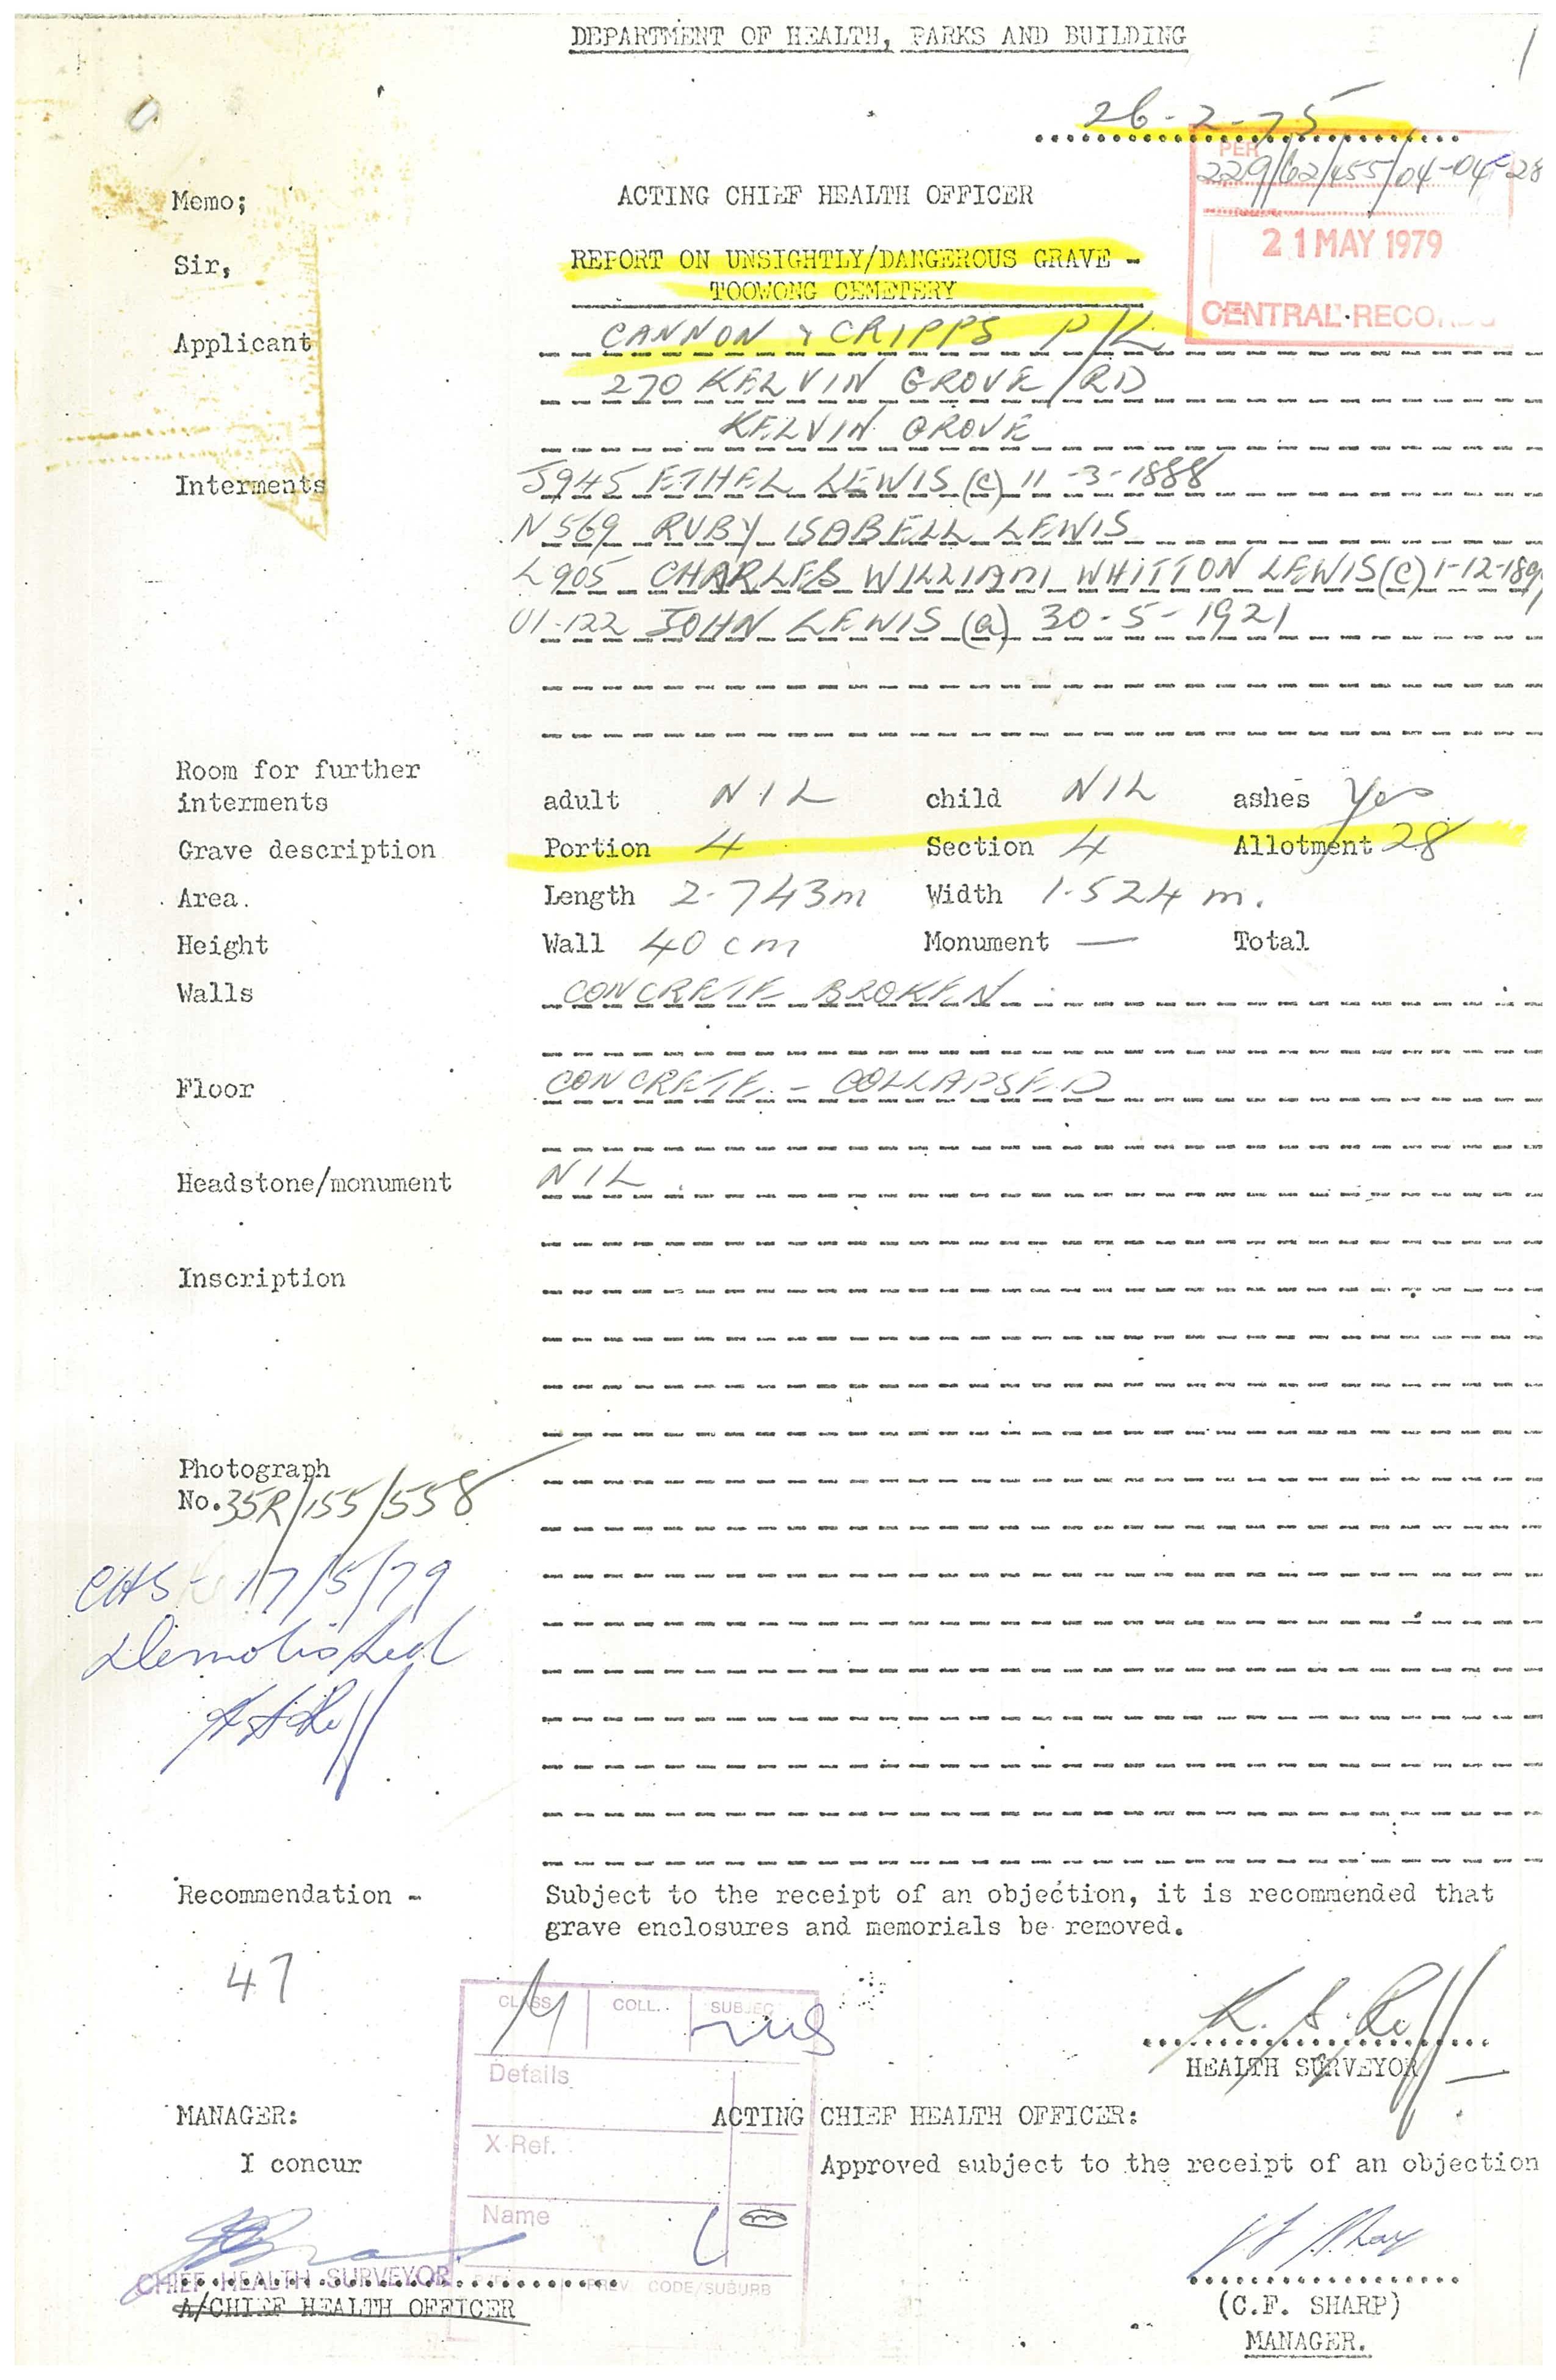 DEPARTMENT OF HEALTH, PARKS AND BUILDING
26-2-75
PER
229/62/455/04-04-28
Memo; ACTING CHIEF HEALTH OFFICER
21 MAY 1979
Sir, REPORT ON UNSIGHTLY/DANGEROUS GRAVE -
TOOWONG CEMETERY
CENTRAL RECO
Applicant CANNON & CRIPPS P/L
270 KELVIN GROVE RD
KELVIN GROVE
Interments J945 ETHEL LEWIS (c) 11-3-1888
N569 RUBY ISABELL LEWIS
L905 CHARLES WILLIAM WHITTON LEWIS (c) 1-12-189
U1-122 JOHN LEWIS (a) 30-5-1921
Room for further
interments adult NIL child NIL ashes Yes
Grave description Portion 4 Section 4 Allotment 28
Area. Length 2.743m Width 1.524 m.
Height Wall 40 cm Monument — Total
Walls CONCRETE BROKEN
Floor CONCRETE - COLLAPSED
Headstone/monument NIL.
Inscription
Photograph
No. 35R/155/558
CHS - 17/5/79
Demolished
Recommendation - Subject to the receipt of an objection, it is recommended that
grave enclosures and memorials be removed.
47
CLASS COLL. SUBJEC
K. S.
HEALTH SURVEYOR
Details
MANAGER: ACTING CHIEF HEALTH OFFICER:
X-Ref.
I concur Approved subject to the receipt of an objection
Name
CHIEF HEALTH SURVEYOR
CODE/SUBURB
A/CHIEF HEALTH OFFICER
(C.F. SHARP)
MANAGER.